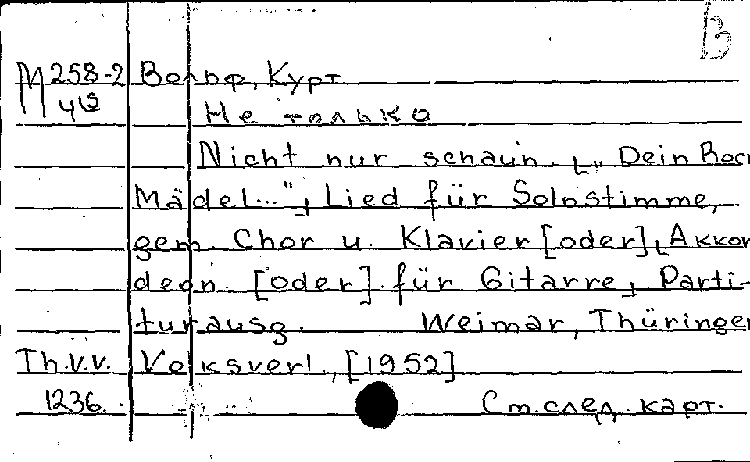 В
М 258-2 Вольф, Курт
43
Не только
Nicht nur schaun. [„Dein Rock
Mädel..."] Lied für Solostimme,
gem. Chor u. Klavier [oder] [Akkor
deon [oder] für Gitarre] Parti-
turausg. Weimar, Thüringer
Th.V.V. Volksverl., [1952]
1236. См. след. карт.